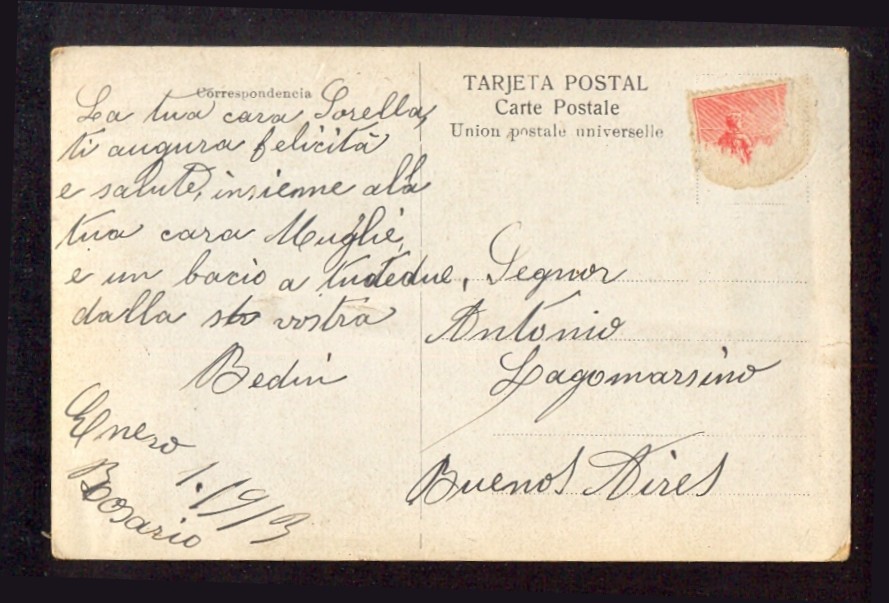 Correspondencia
La tua cara Sorella,
ti augura felicità
e salute, insieme alla
tua cara Muglie,
e un bacio a tutedue,
dalla vostra
Bedin
Enero
1.1913
Rosario
TARJETA POSTAL
Carte Postale
Union postale universelle
Segnor
António
Lagomarsino
Buenos Aires